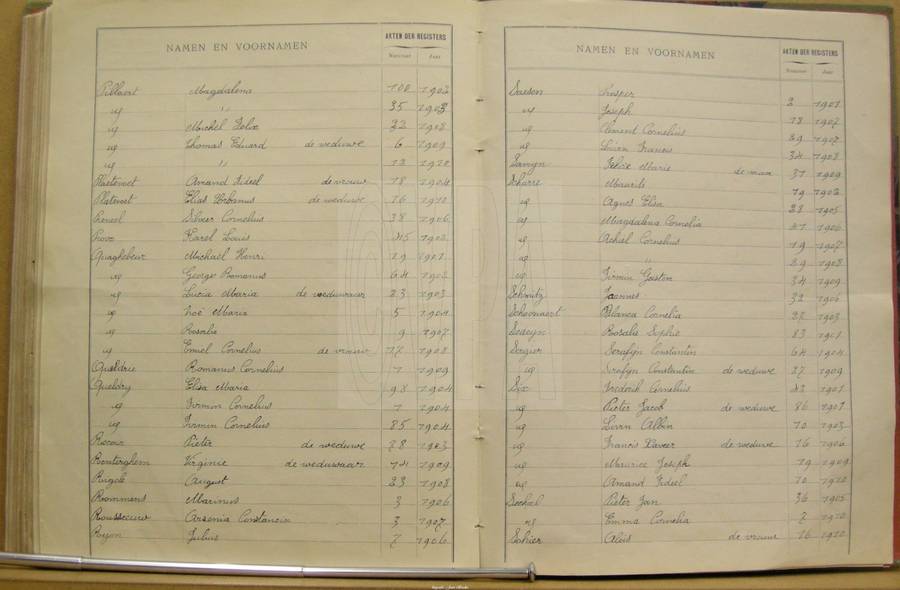 NAMEN EN VOORNAMEN AKTEN DER REGISTERS
Nummer Jaar
Pillaert Magdalena 100 1902
id " 35 1903
id Michel Felix 32 1908
id Thomas Eduard de weduwe 6 1909
id " 12 1910
Amand Fideel de vrouw 18 1904
Platevoet Elias Urbanus de weduwe 16 1910
Silveer Cornelius 38 1906
Karel Louis 45 1902
Quaghebeur Michaël Henri 19 1901
id George Romanus 64 1902
id Lucia Maria de weduwaar 23 1903
id Noë Maria 5 1904
id Rosalie 9 1907
id Emiel Cornelius de vrouw 17 1908
Queldrie Romanus Cornelius 1 1909
Queldry Elisa Marie 98 1904
id Firmin Cornelius 1 1904
id Firmin Cornelius 85 1904
Pieter de weduwe 28 1903
Renterghem Virginie de weduwaar 74 1909
August 23 1908
Rommens Marinus 3 1906
Rousseeuw Arsenia Constancia 3 1907
Ryon Julius 7 1906
NAMEN EN VOORNAMEN AKTEN DER REGISTERS
Nummer Jaar
Saeson Prosper 2 1901
id Joseph 18 1907
id Clement Cornelius 29 1907
id Franciis 34 1908
Sanyn Felix Marie de man 31 1909
Scharre Maurits 19 1902
id Agnes Elisa 28 1905
id Magdalena Cornelia 41 1906
id Achiel Cornelius 19 1907
id " 29 1908
id Firmin Gaston 34 1909
Schmitz Joannes 32 1906
Schoonaert Blanca Cornelia 27 1903
Sedeyn Rosalie Sophie 83 1901
Sergier Serafyn Constantin 64 1904
id Serafyn Constantin de weduwe 27 1909
Six Frederik Cornelius 43 1901
id Pieter Jacob de weduwe 86 1901
id Livin Albin 10 1903
id Francis Xaveer de weduwe 16 1906
id Maurice Joseph 19 1909
id Amand Fideel 10 1910
Pieter Jan 36 1905
id Emma Cornelia 7 1910
Aloïs de vrouw 16 1910